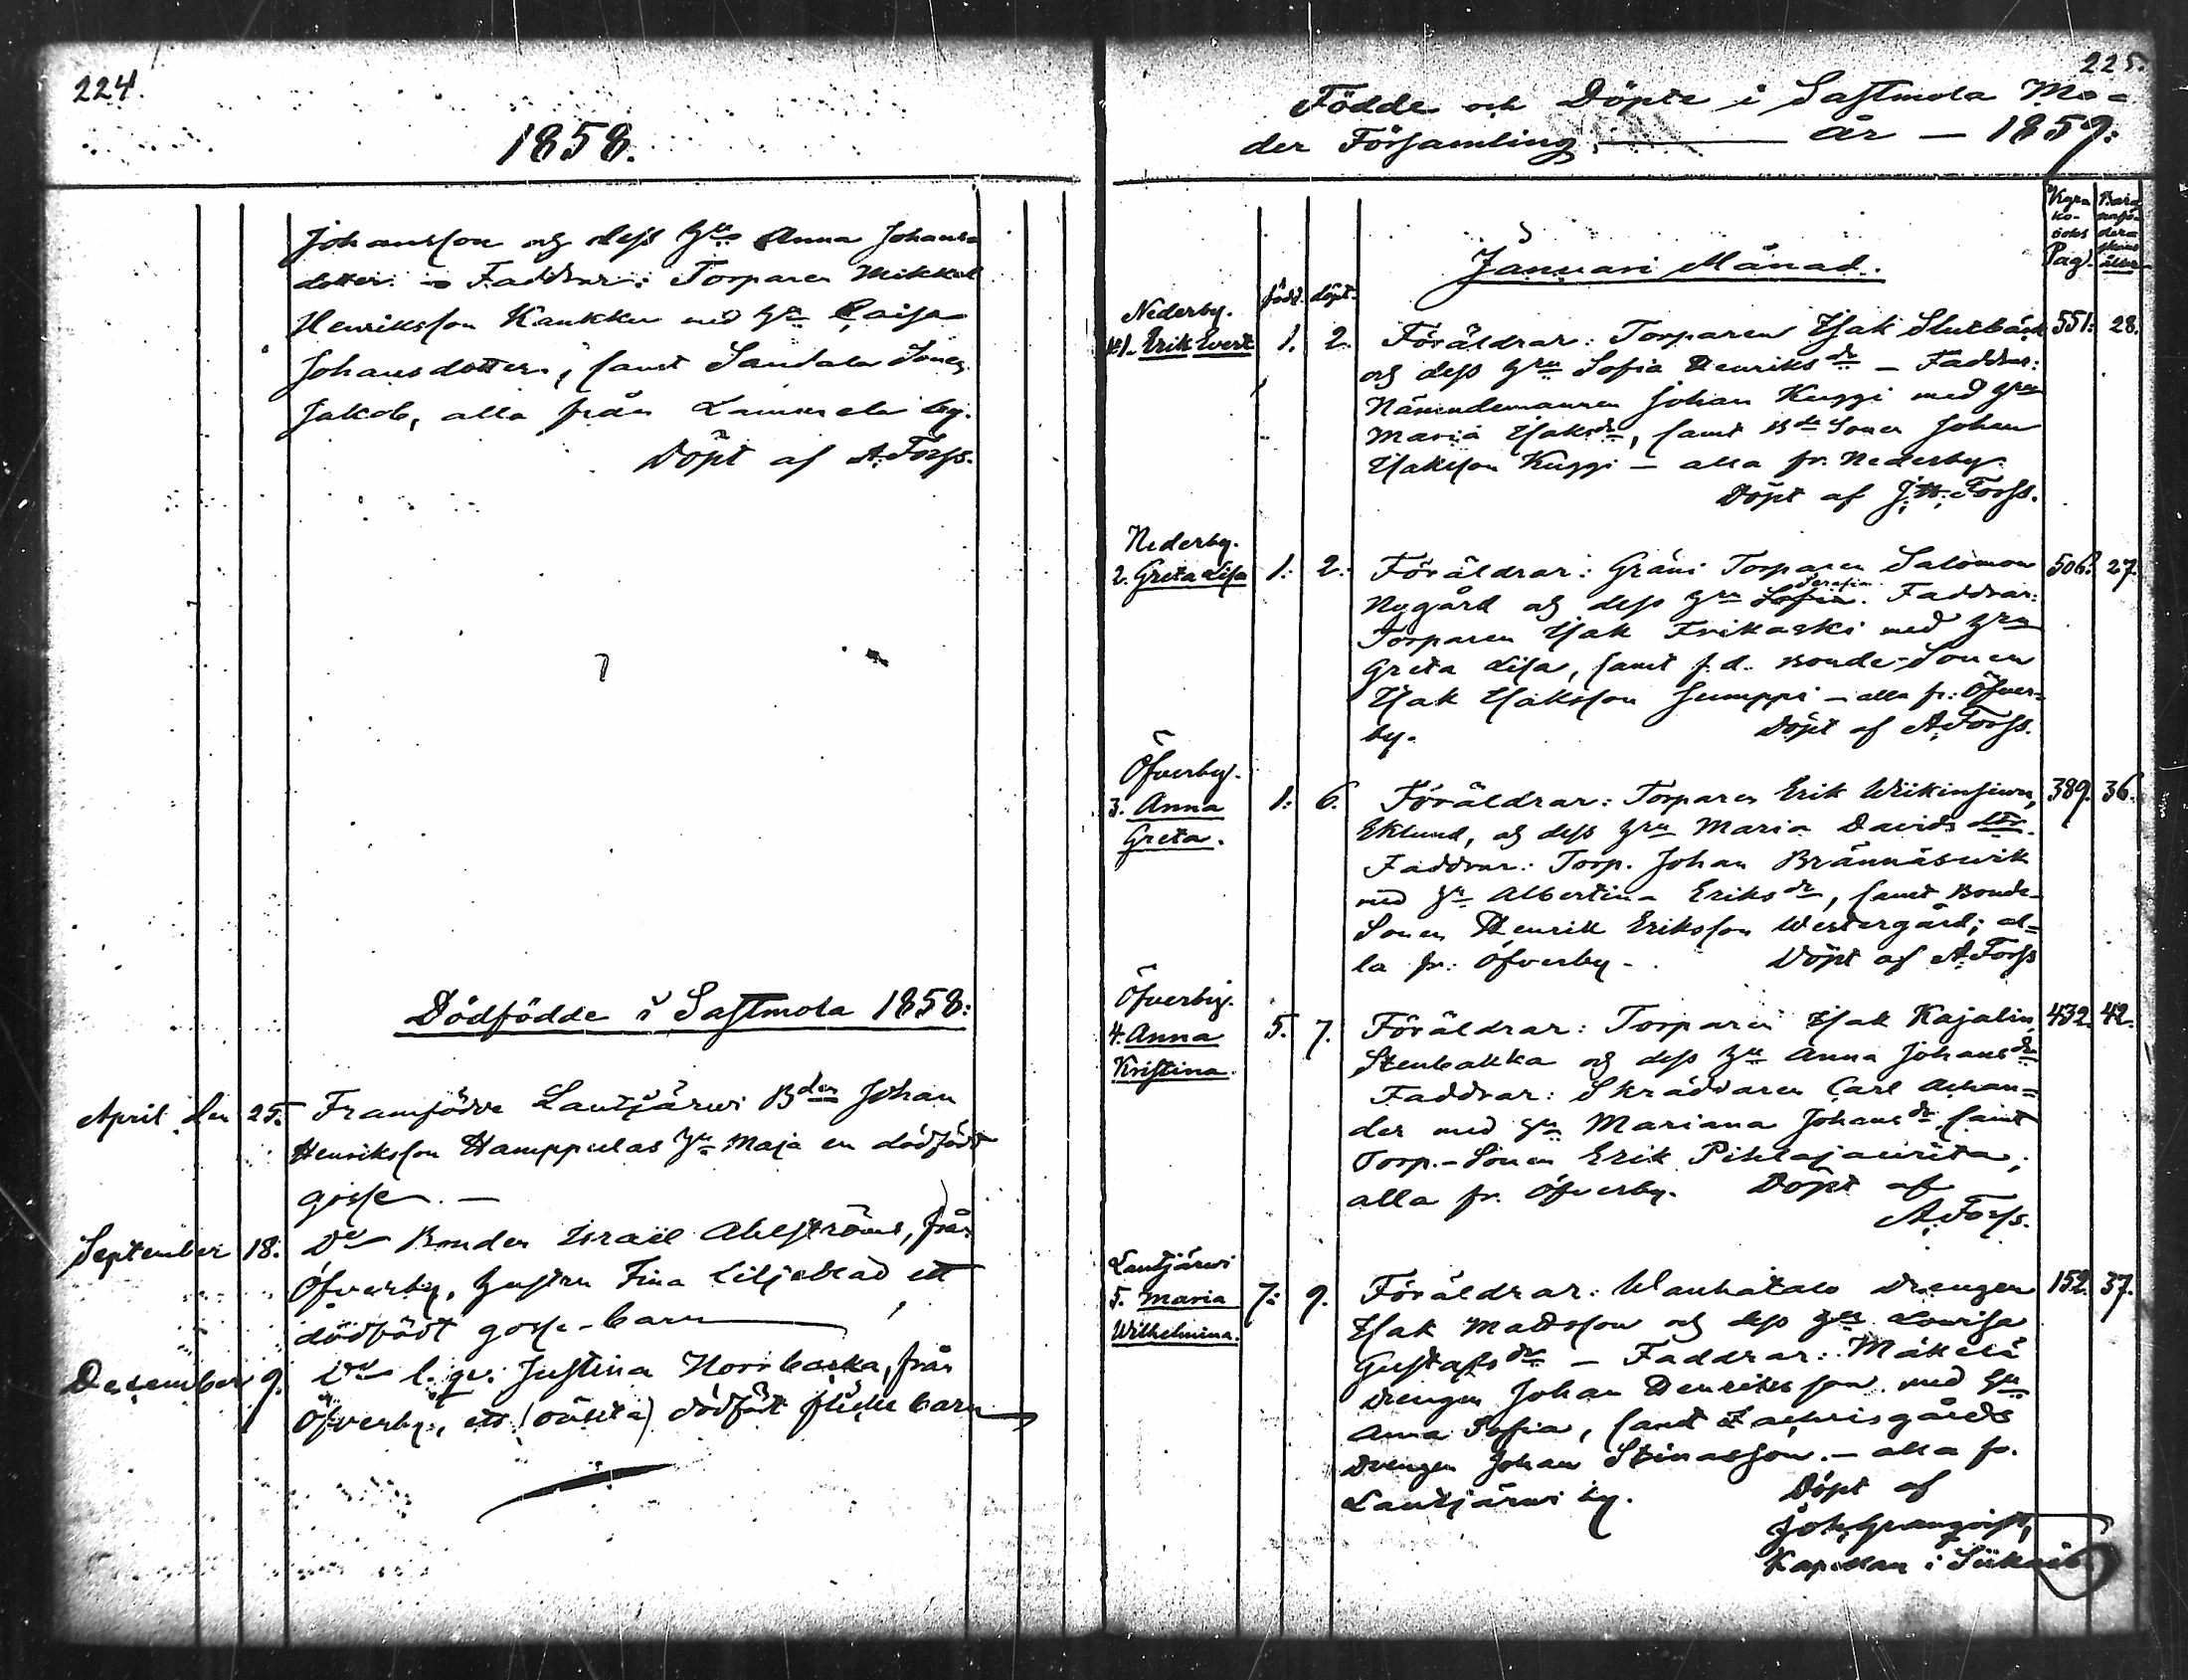 224.
1858.
Johansson och dess hu Anna Johans
dotter. Faddrar: Torparen Mikkel
Henriksson Kaukku med hu Caisa
Johansdotter, samt Sandala Sonen
Jakob, alla från Lammela by.
Döpt af A. Forss.
Dödfödde i Sastmola 1858:
April den 25. Framfödde Lautjärwi Bden Johan
Henriksson Hamppulas hu Maja en dödfödd
gosse. —
September 18. Do Bonden Israël Ahlströms, från
Öfverby, hustru Fina Liljeblad ett
dödfödt gosse-barn
December 9. Do Justina Norrbacka, från
Öfverby, ett (oäkta) dödfödt flicke barn
225.
Födde och Döpte i Sastmola Mo-
der Församling, år — 1859:
Kyrko-
boks
Pag.
Januari Månad.
född. döpt.
Nederby.
1. Erik Evert 1. 2. Föräldrar: Torparen Isak Slutbäck 551. 28.
och dess hru Sofia Henriksdr — Faddrar:
Nämndemannen Johan Kuggi med hru
Maria Isaksdr, samt Bde Sonen Johan
Isaksson Kuggi — alla fr. Nederby.
Döpt af J. H. Forss.
Nederby.
2. Greta Lisa 1: 2: Föräldrar: Gräni Torparen Salomon 506. 27.
Serafia
Nygård och dess hru Sofia. Faddrar:
Torparen Isak Frikaski med hru
Greta Lisa, samt f.d. Bonde-Sonen
Isak Isaksson Gumppi — alla fr. Öfver-
by. Döpt af A. Forss.
Öfverby.
3. Anna 1: 6. Föräldrar: Torparen Erik Wiikinsiwu, 389. 36.
Greta. Eklund, och dess hru Maria Davids dtr.
Faddrar: Torp. Johan Brännäswik
med hu Albertina Eriksdr, samt Bonde-
Sonen Henrik Eriksson Westergård; al-
la fr. Öfverby. Döpt af A. Forss
Öfverby.
4. Anna 5. 7. Föräldrar: Torparen Isak Kajalin, 432. 42.
Kristina. Stenbakka och dess hu Anna Johansdr
Faddrar: Skräddaren Carl Achan-
der med hu Mariana Johansdr, samt
Torp.-Sonen Erik Pihlajaurita;
alla fr. Öfverby. Döpt af
A. Forss.
Lautjärwi
5. Maria 7: 9. Föräldrar: Wanhatalo Drengen 152. 37.
Wilhelmina. Isak Madsson och dess hru Lowisa
Gustafsdr — Faddrar: Mäkelä
drengen Johan Henriksson med hu
Anna Sofia, samt Zachrisgårds
drengen Johan Stinasson. — alla fr.
Lautjärwi by. Döpt af
Joh. Granqvist,
Kapellan i Siikais